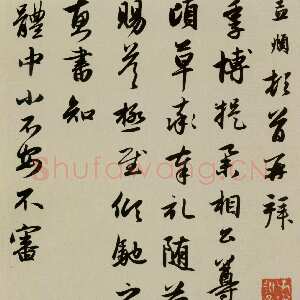 孟頫頓首再拜
季博提舉相公尊
頃草率奉札随
賜答極馳之
惠書知
體中小不安不審
Shufawang.CN